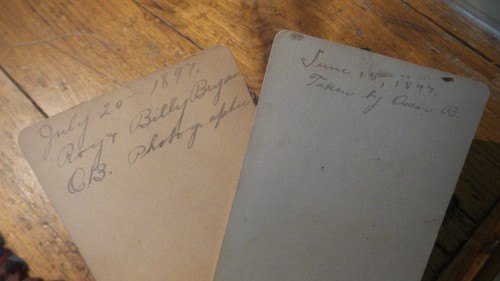 July 20 1897.
Roy & Billy Bryan
OB. Photographer
June 1897.
Taken by Owen B.